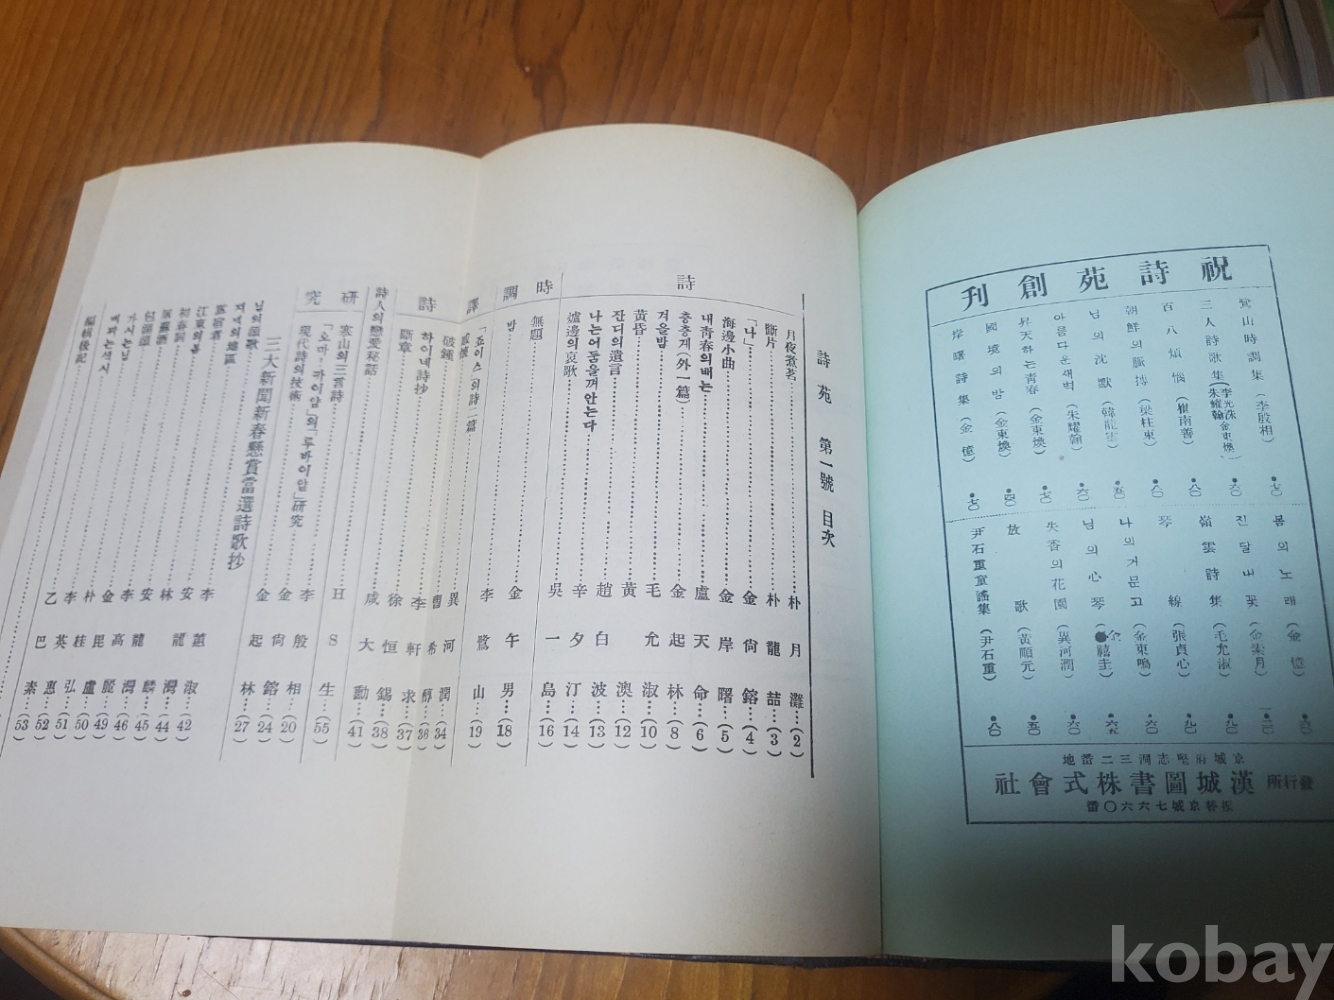 祝詩苑創刊
鷺山時調集(李殷相)
三人詩歌集(李光洙 朱耀翰 金東煥)
百八煩惱(崔南善)
朝鮮의脈搏(梁柱東)
님의沈默(韓龍雲)
아름다운새벽(朱耀翰)
昇天하는靑春(金東煥)
國境의밤(金東煥)
岸曙詩集(金億)
봄의노래(金億)
진달내꽃(金素月)
嶺雲詩集(毛允淑)
琴線(張貞心)
나의거문고(金東鳴)
님의心琴(金禧圭)
失香의花園(異河潤)
放歌(黃順元)
尹石重童謠集(尹石重)
京城府堅志洞三二番地
發行所 漢城圖書株式會社
振替京城七六六〇番
詩苑 第一號 目次
詩
月夜煮茗 朴月灘 (2)
斷片 朴龍喆 (3)
「나」 金尙鎔 (4)
海邊小曲 金岸曙 (5)
내靑春의배는 盧天命 (6)
층층계(外一篇) 金起林 (8)
겨울밤 毛允淑 (10)
黃昏 黃澳 (12)
잔디의遺言 趙白波 (13)
나는어둠을껴안는다 辛夕汀 (14)
爐邊의哀歌 吳一島 (16)
時調
無題
밤 金午男 (18)
李鷺山 (19)
譯詩
「죠이스」의詩二篇
破鍾 異河潤 (34)
曹希醇 (36)
하이네詩抄 李軒求 (37)
斷章 徐恒錫 (38)
詩人의戀愛秘話 咸大勳 (41)
研究
寒山의三言詩 H S 生 (55)
「오마·카이암」의「루바이얌」研究 李殷相 (20)
金尙鎔 (24)
現代詩의技術 金起林 (27)
三大新聞新春懸賞當選詩歌抄
江東의봄
初春詞
가시는님
編輯後記
李蕙淑 (42)
安龍灣 (44)
林麟 (45)
安龍灣 (46)
李高麗 (49)
金昆盧 (50)
朴桂弘 (51)
李英惠 (52)
乙巴素 (53)
kobay